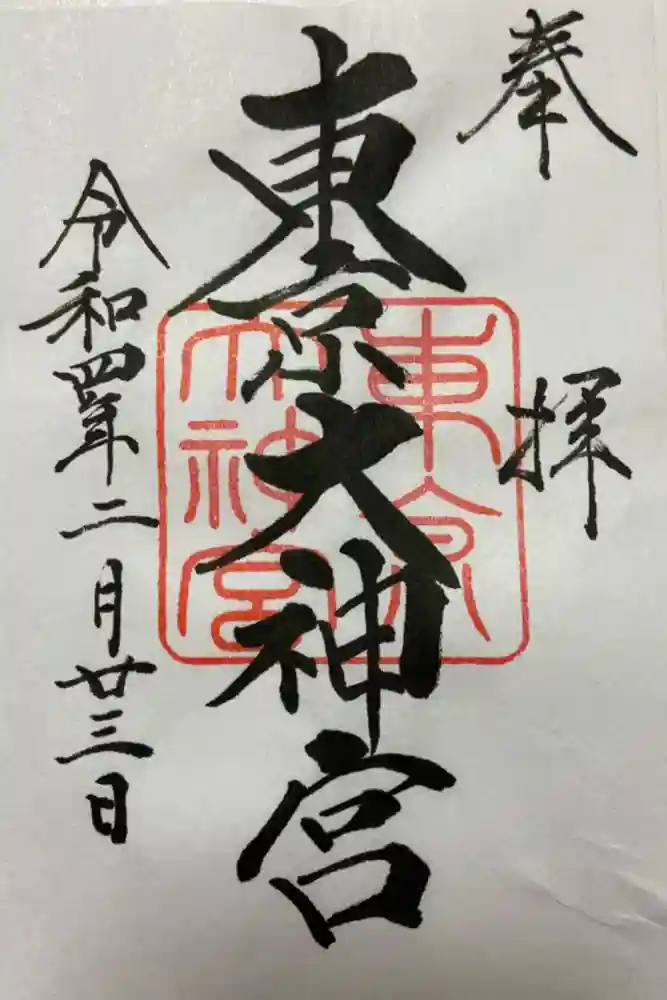 奉拝
東京大神宮
東京
大神宮
令和四年二月廿三日